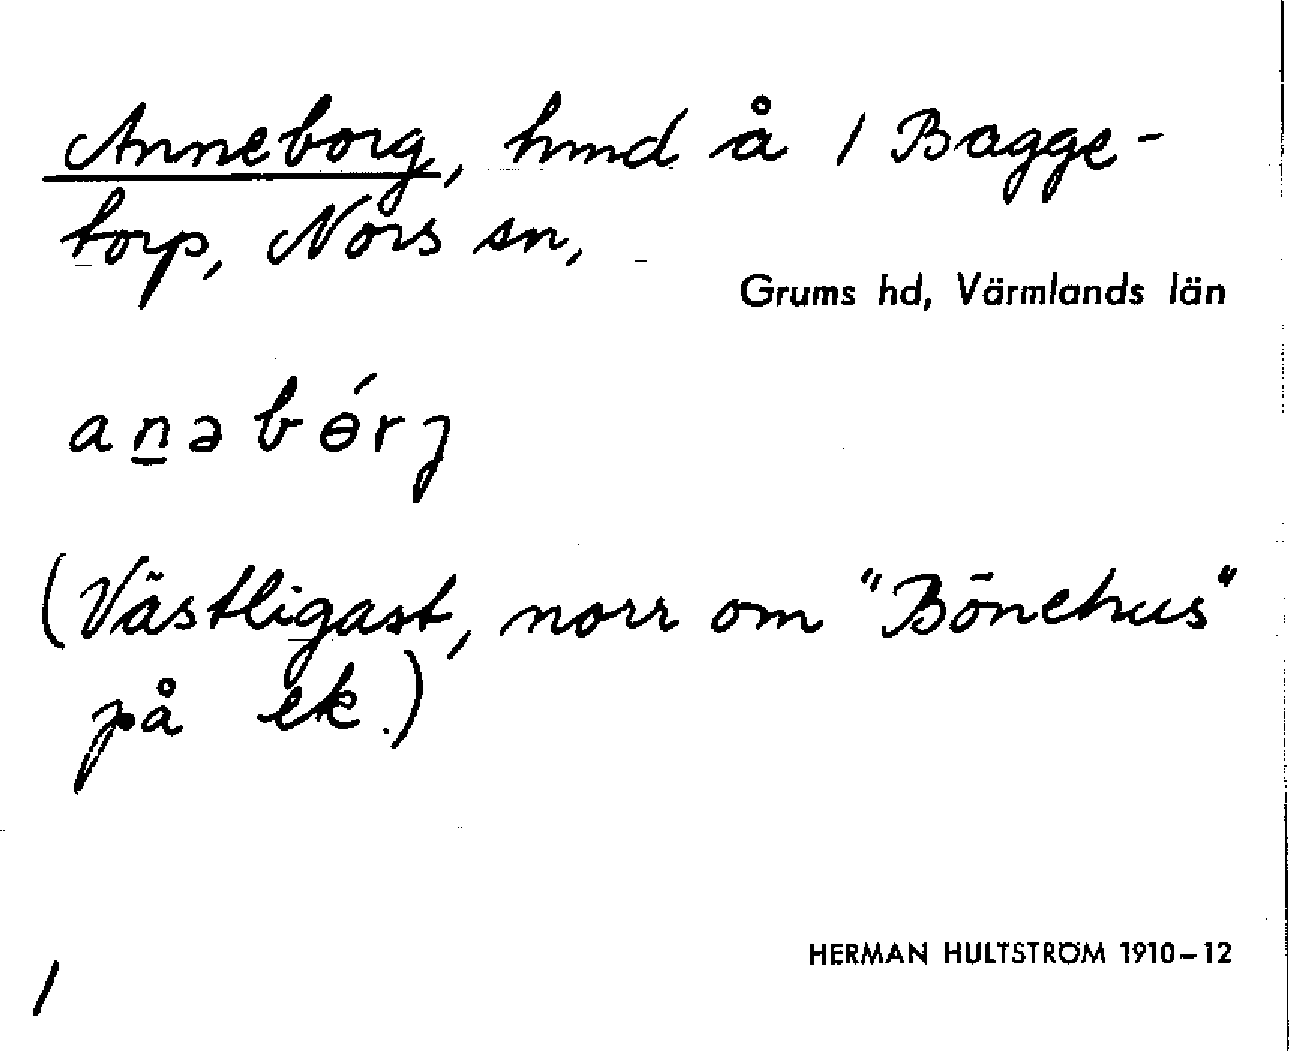 Anneborg, hmd å 1 Bagge-
torp, Nors sn,
Grums hd, Värmlands län
an̲əbɵ́rȷ
(Västligast, norr om "Bönehus"
på ek.)
HERMAN HULTSTRÖM 1910-12
1